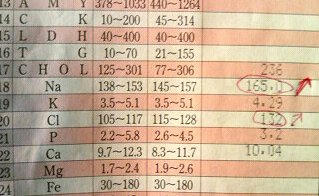 13 A M Y 378~1033 440~1264
14 C K 10~200 45~314
15 L D H 40~400 40~400
16 T G 10~70 21~155
17 C H O L 125~301 77~306 236
18 Na 138~153 145~157 165.0
19 K 3.5~5.1 3.5~5.1 4.29
20 Cl 105~117 115~128 132
21 P 2.2~5.8 2.6~4.5 3.2
22 Ca 9.7~12.3 8.3~11.7 10.04
23 Mg 1.7~2.4 1.9~2.6
24 Fe 30~180 30~180